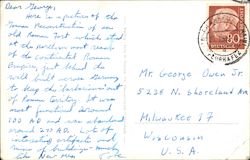 Dear George,
Here is a picture of the
Roman Reconstruction of an
old Roman Fort which stood
at the northern most reach
of the continental Roman
Empire, just behind the
wall built across Germany
to keep the "barbarians" out
of Roman territory. It was
built around
200 AD and was abandoned
around 270 AD. Lots of
interesting artifacts and
ruins of buildings nearby.
90
DEUTSCHE
Mr. George Owen Jr.
5236 N. Shoreland Ave
Milwaukee 17
Wisconsin
U. S. A.